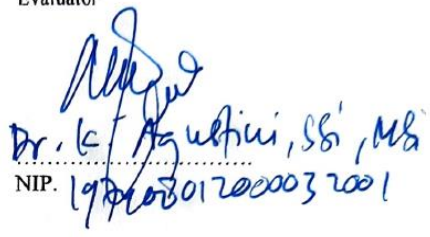 Evaluator
Dr. K. Agustini, SSi, MSi
NIP. 197408012000032001